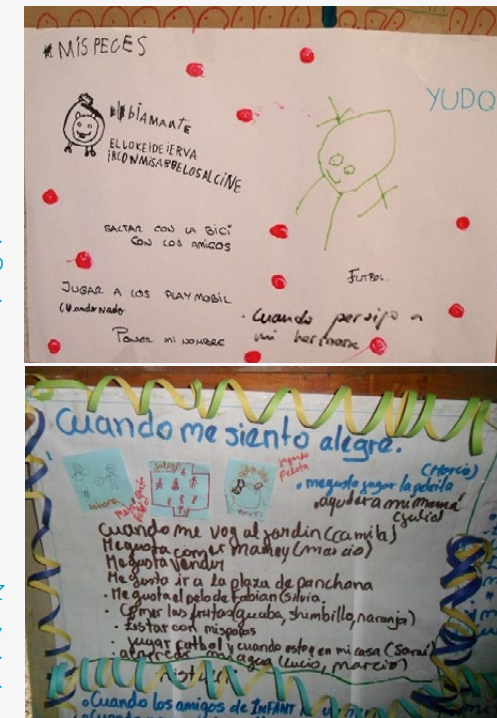 MIS PECES
YUDO
DIAMANTE
EL LOKEIDEIERVA
IRCONMISABBELOSALCINE
SALTAR CON LA BICI
CON LOS AMIGOS
FUTBOL.
JUGAR A LOS PLAYMOBIL
CUANDO NADO
PONER MI NOMBRE
. Cuando persigo a
mi hermana
Cuando me siento alegre.
jugando
pelota
(Marcio)
. me gusta jugar la pelota
. ayudar a mi mamá
(Julia)
Cuando me voy al jardin (camila)
Me gusta comer mamey (marcio)
Me gusta vender
Me gusta ir a la plaza de panchana
. Me gusta el pelo de Fabian (silvia.
. Comer las frutas (guaba, shimbillo, naranja)
. Estar con mis papas
. Jugar futbol y cuando estoy en mi casa (Sarai)
agua (Lucio, marcio)
. Cuando los amigos de INFANT